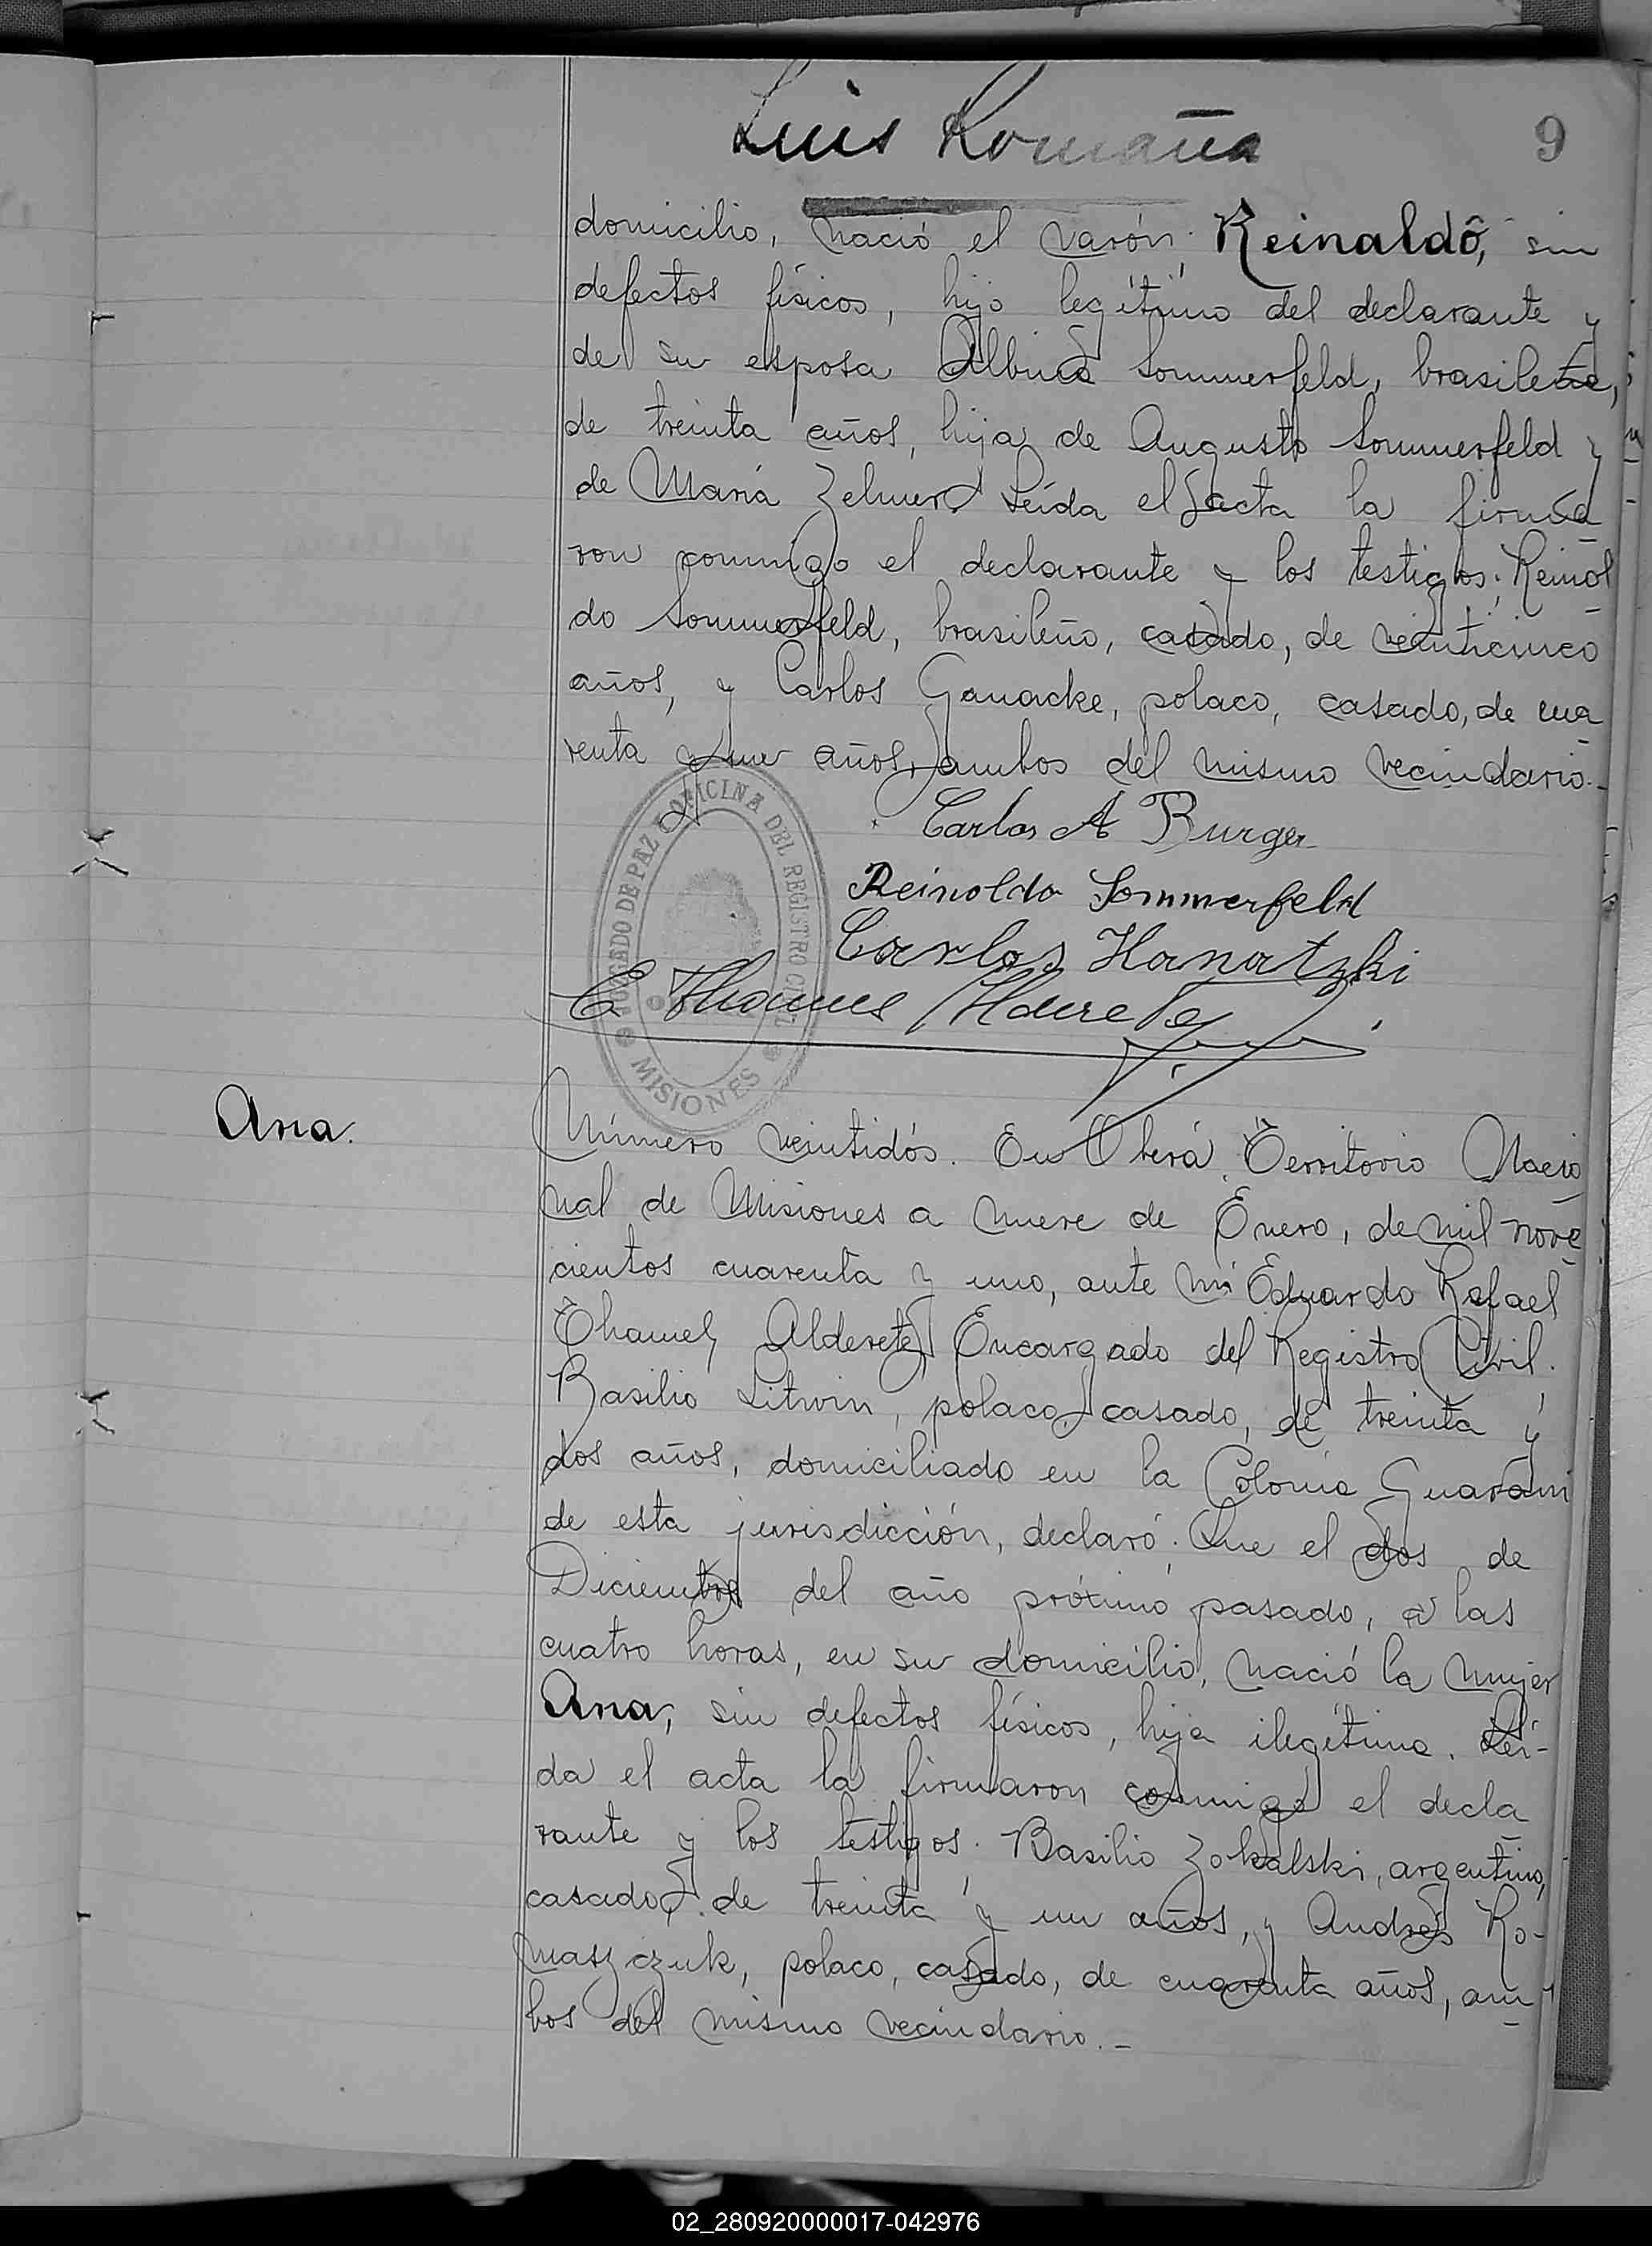 Luis Romaña
9
domicilio, nació el varón: Reinaldo, sin
defectos físicos, hijo legítimo del declarante y
de su esposa Albina Sommerfeld, brasileña,
de treinta años, hija de Augusto Sommerfeld y
de María Zelmer. Leída el acta la firma
ron conmigo el declarante y los testigos: Reinol
do Sommerfeld, brasileño, casado, de veinticinco
años, y Carlos Ganacke, polaco, casado, de cua
renta y un años, ambos del mismo vecindario.-
Carlos A Burger
Reinoldo Sommerfeld
Carlos Hanatzki
E Thames Alderete
JUZGADO DE PAZ Y OFICINA DEL REGISTRO CIVIL
MISIONES
Ana.
Número veintidós. En Oberá, Territorio Nacio
nal de Misiones a nueve de Enero, de mil nove
cientos cuarenta y uno, ante mi Eduardo Rafael
Thames Alderete, Encargado del Registro Civil.
Basilio Litwin, polaco, casado, de treinta y
dos años, domiciliado en la Colonia Guaraní
de esta jurisdicción, declaró: Que el dos de
Diciembre del año próximo pasado, a las
cuatro horas, en su domicilio, nació la mujer
Ana, sin defectos físicos, hija ilegítima. Leí-
da el acta la firmaron conmigo el decla
rante y los testigos: Basilio Zokalski, argentino,
casado, de treinta y un años, y Andrés Ro-
maszczuk, polaco, casado, de cuarenta años, am
bos del mismo vecindario.-
02_280920000017-042976